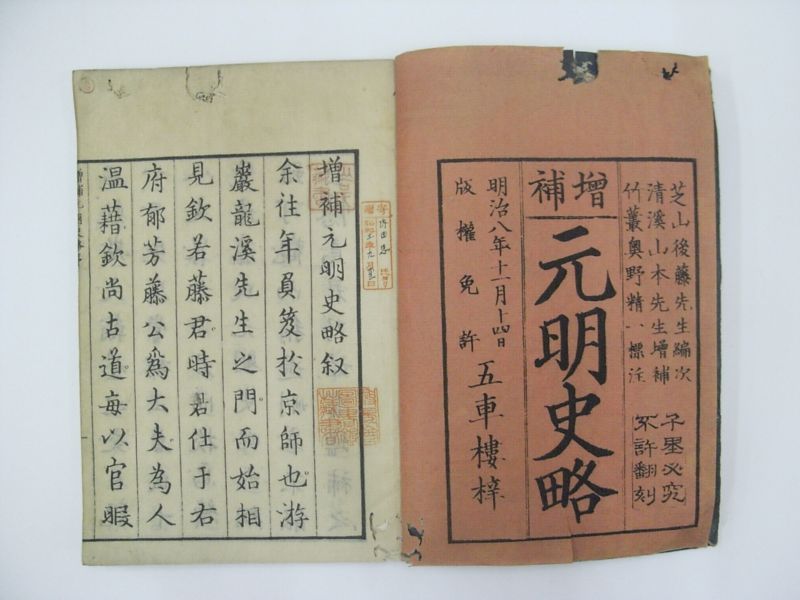 芝山後藤先生編次
清溪山本先生增補
竹叢奥野精一標注
不許翻刻
千里必究
增補
元明史略
明治八年十一月十四日
版權免許
五車樓梓
增補元明史略叙
余徃年負笈於京師也游
巖龍溪先生之門而始相
見欽若藤君時君仕于右
府郁芳藤公爲大夫為人
溫藉欽尚古道每以官暇